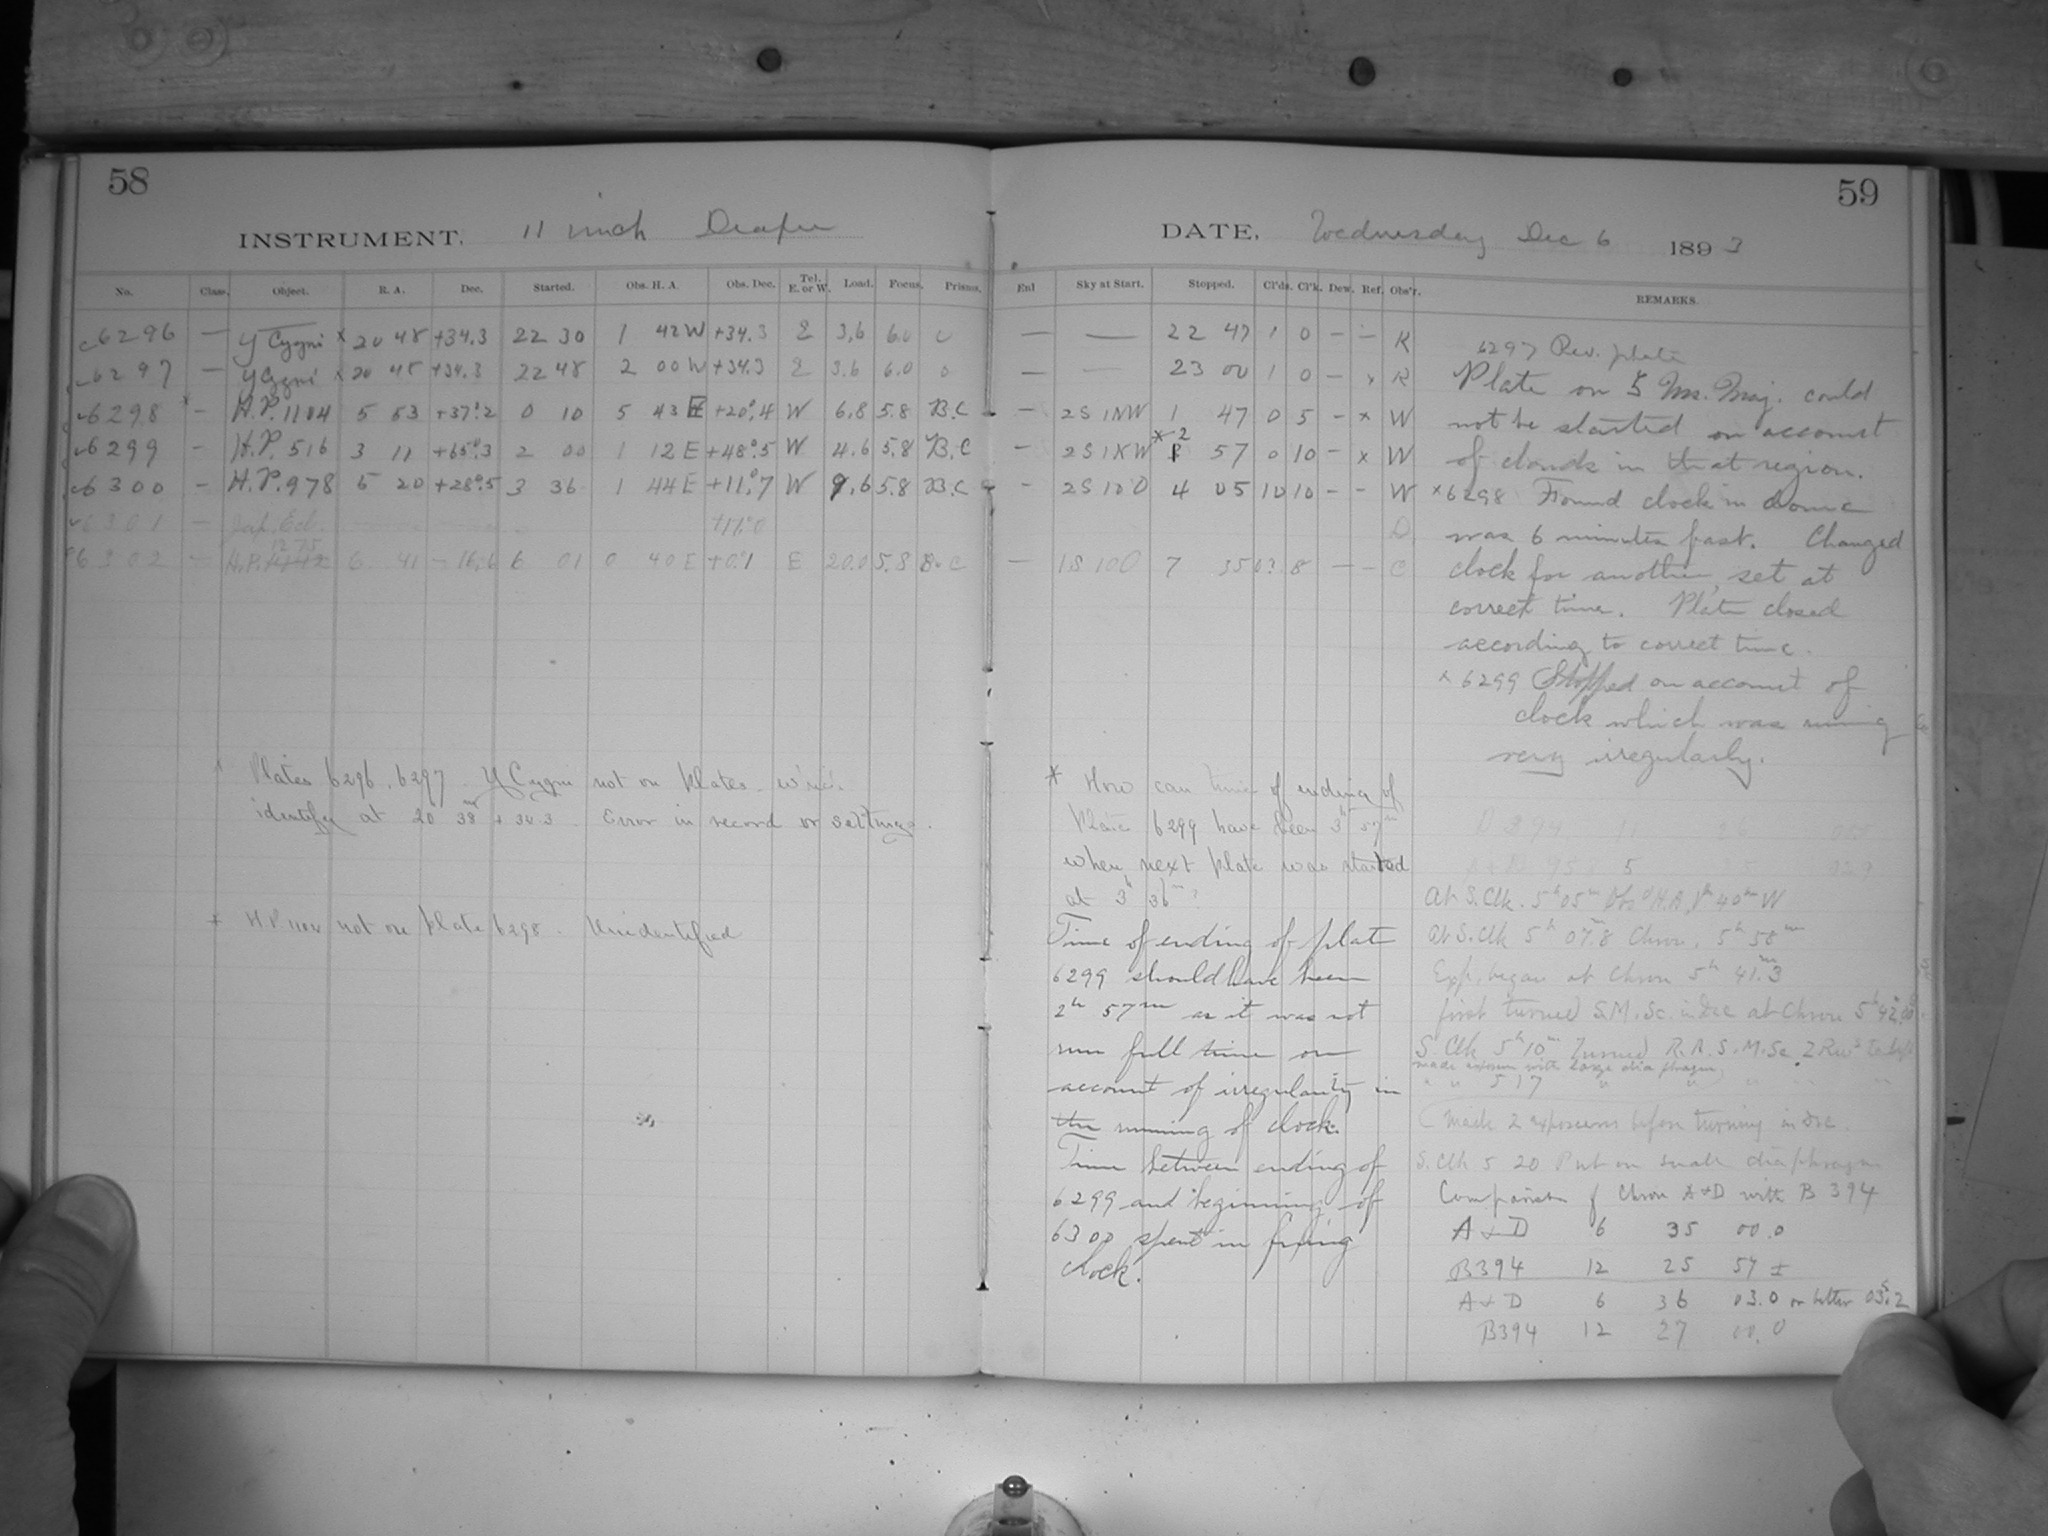 58
INSTRUMENT. 11 inch Draper
No. Class. Object. R. A. Dec. Started. Obs. H. A. Obs. Dec. Tel. E. or W. Load. Focus. Prisms.
c6296 — Y Cygni × 20 48 +34.3 22 30 1 42 W +34.3 E 3.6 6.0 0
6297 — Y Cygni × 20 48 +34.3 22 48 2 00 W +34.3 E 3.6 6.0 0
6298 * — H.P. 1104 5 53 +37°.2 0 10 5 43 E +20°.4 W 6.8 5.8 B.C
6299 — H.P. 516 3 11 +65°.3 2 00 1 12 E +48°.5 W 4.6 5.8 B.C
6300 — H.P. 978 5 20 +28°.5 3 36 1 44 E +11°.7 W 9.6 5.8 B.C
6301 — Jup. Ecl. +17°.0
6302 — H.P. 1275 6 41 -16.6 6 01 0 40 E +0.1 E 20.0 5.8 B.C
Plates 6296, 6297 Y Cygni not on plates
identify at 20 38m + 34.3 Error in record or settings.
* H.P. 1104 not on plate 6298. Unidentified
59
DATE. Wednesday Dec 6 1893
Enl Sky at Start. Stopped. Cl'ds. Cl'k. Dew. Ref. Obs'r. REMARKS.
— — 22 47 1 0 — — R
— — 23 00 1 0 — × R
— 2S 1NW 1 47 0 5 — × W
— 2S 1NW * 2 57 0 10 — × W
— 2S 10 0 4 05 10 10 — — W
D
— 1S 10 0 7 35 03 8 — — C
6297 Rev. plate
Plate on ξ Urs. Maj. could
not be started on account
of clouds in that region.
×6298 Found clock in dome
was 6 minutes fast. Changed
clock for another, set at
correct time. Plate closed
according to correct time.
×6299 Stopped on account of
clock which was running
very irregularly.
* How can time of ending of
Plate 6299 have been 3h 57m
when next plate was started
at 3h 36m?
Time of ending of plate
6299 should have been
2h 57m as it was not
run full time on
account of irregularity in
the running of clock.
Time between ending of
6299 and beginning of
6300 spent in fixing
clock.
At S. Clk. 5h 05m Obs'd H.A. 1h 40m W
At S. Clk 5h 07.8 Chron. 5h 58m
Exp. began at Chron 5h 41.3m
first turned S.M. Sc. in Dec at Chron 5h 42
S. Clk 5h 10m Turned R.A. S.M. Sc. 2 Rev's
made exposure with large diaphragm
" " 5 17 " " "
(Made 2 exposures before turning in Dec.
S. Clk 5 20 Put on small diaphragm
Comparison of Chron A+D with B 394
A+D 6 35 00.0
B394 12 25 57 ±
A+D 6 36 03.0 or better 03s.2
B394 12 27 00.0